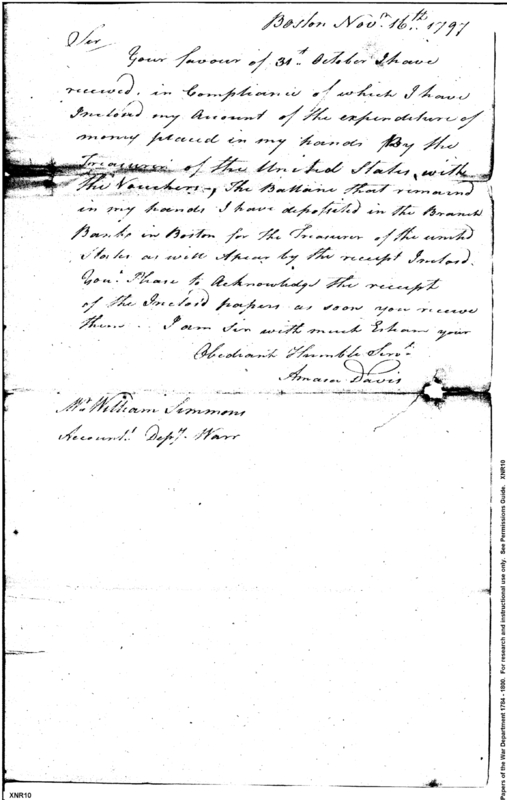 Boston Novr. 16th. 1797
Sir
Your favour of 31st. October I have
received. in Compliance of which I have
Inclosd my Account of the expenditure of
money placed in my hands By the
Treasurer of the United States, with
the Vouchers, The Ballance that remaind
in my hands I have deposited in the Branch
Banks in Boston for the Treasurer of the united
States as will Apear by the receipt Inclosd.
You'l Please to Acknowledge the receipt
of the Inclosd papers as soon you receive
them. I am Sir with much Esteam your
Obediant Humble Servt.
Amasa Davis
Mr. William Simmons
Accountt. Dept. Warr
Papers of the War Department 1784 - 1800. For research and instructional use only. See Permissions Guide. XNR10
XNR10